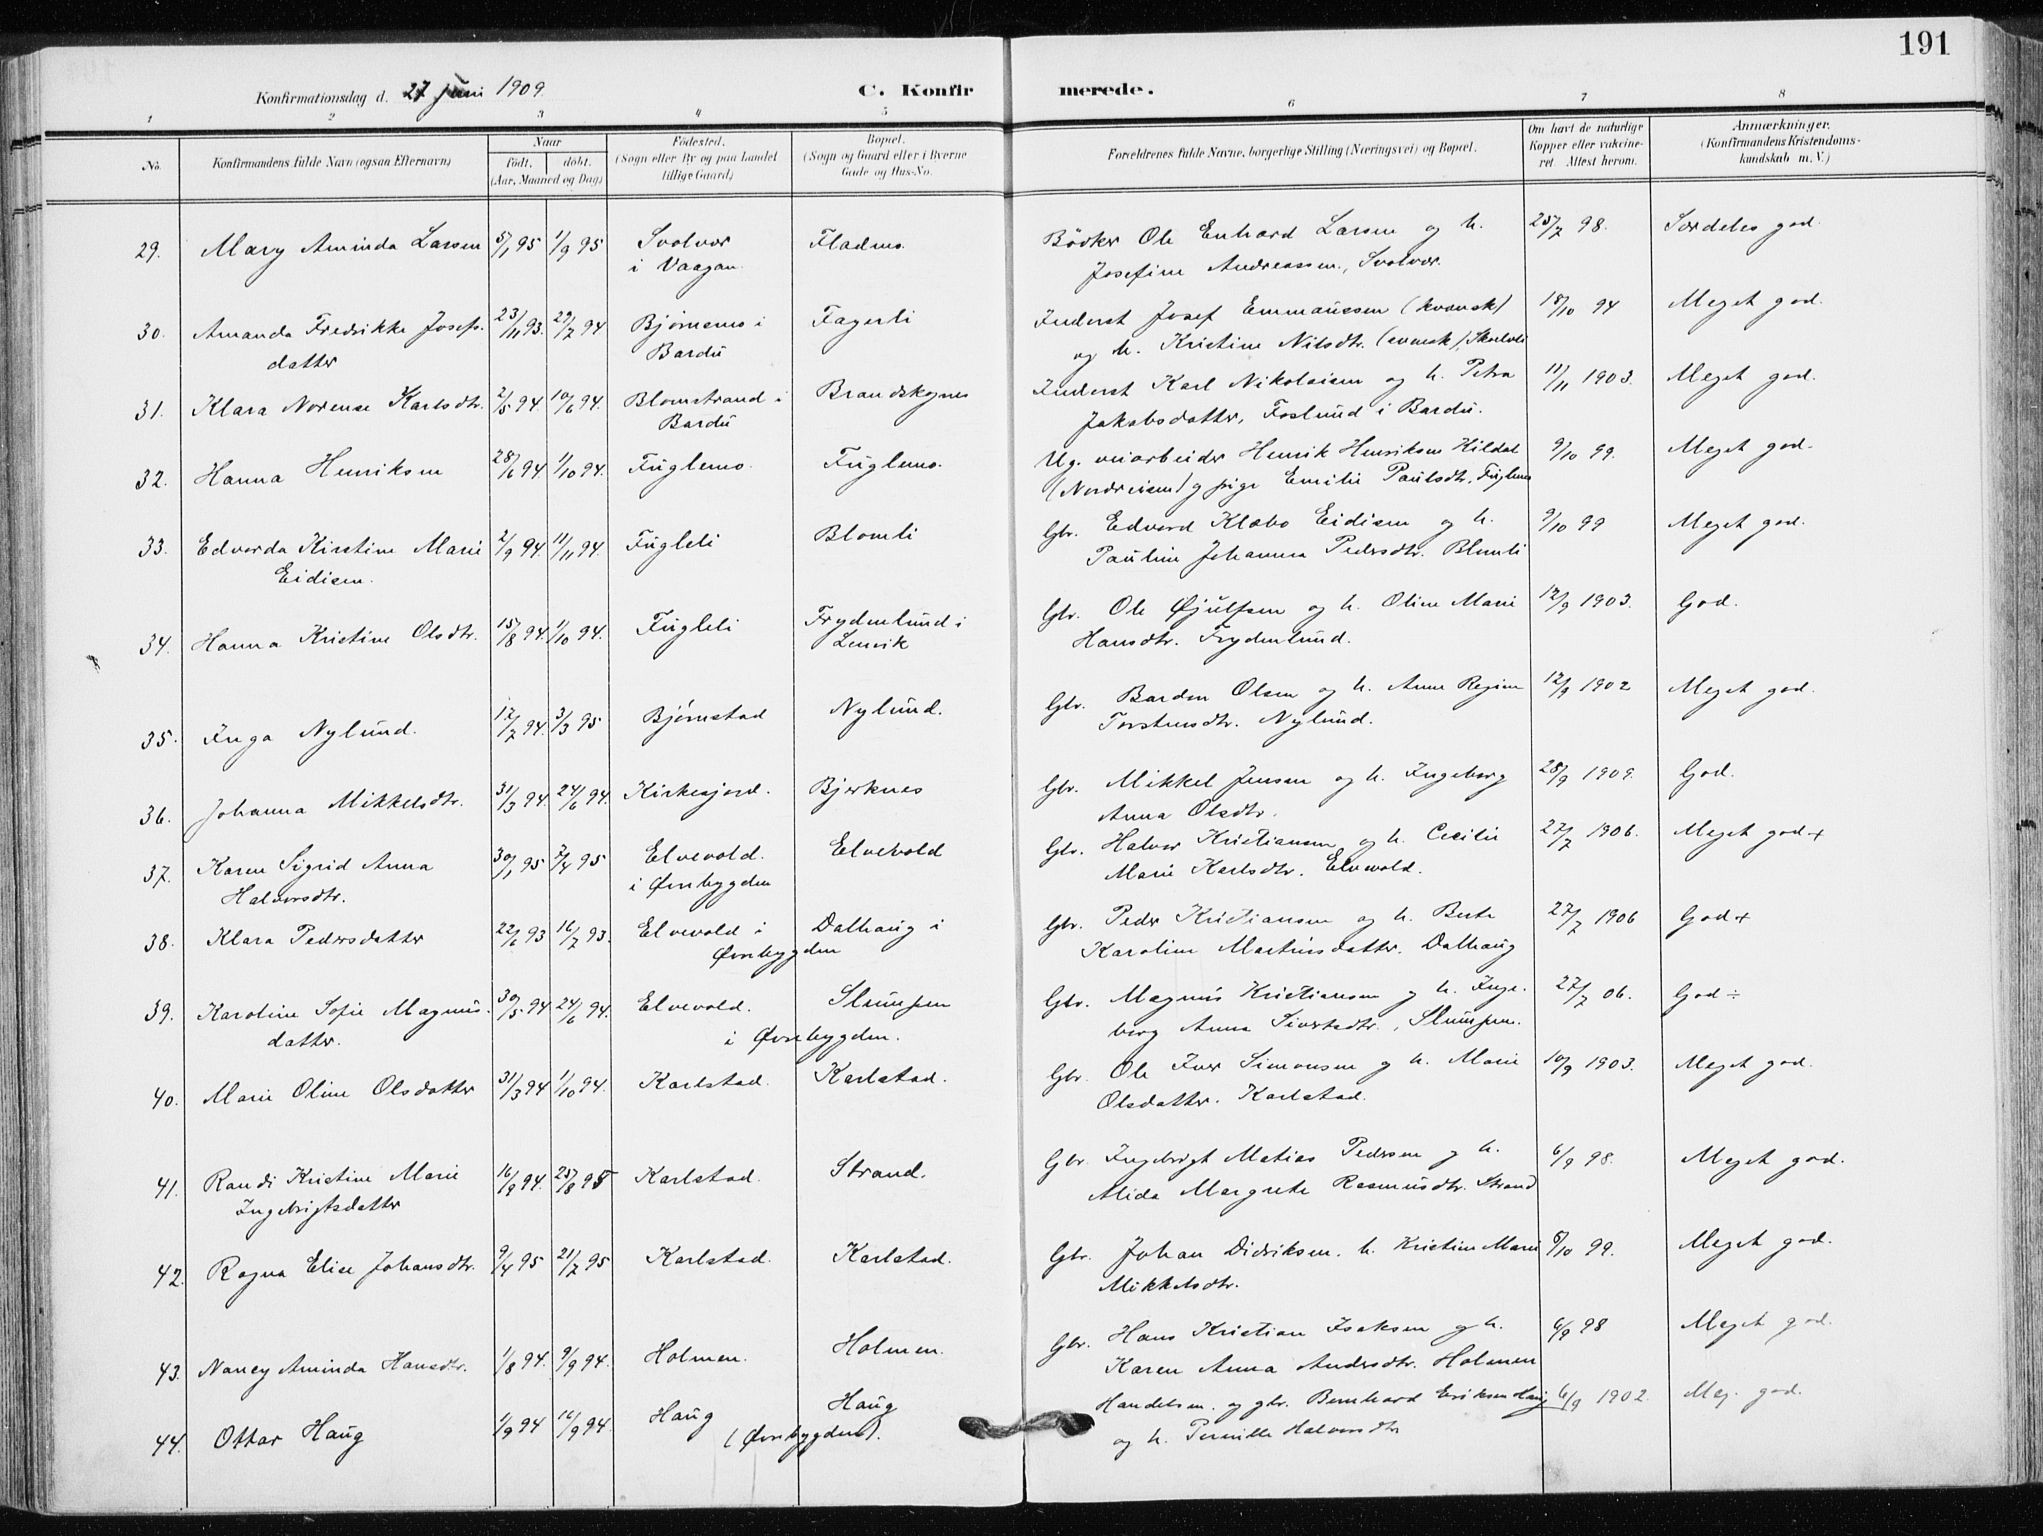 191
Konfirmationsdag d. 27 juni 1909
C. Konfir merede.
1 2 3 4 5 6 7 8
No. Konfirmandens fulde Navn (ogsaa Efternavn) Naar født, døbt. (Aar, Maaned og Dag) Fødested. (Sogn eller By og paa Landet tillige Gaard) Bopæl. (Sogn og Gaard eller i Byerne Gade og Hus-No. Forældrenes fulde Navne, borgerlige Stilling (Næringsvei) og Bopæl. Om havt de naturlige Kopper eller vakcineret. Attest herom. Anmærkninger. (Konfirmandens Kristendomskundskab m. V.)
29. Mary Aminda Larsen 5/1 95 1/9 95 Svolvær Fladmo. Bödker Ole Enhard Larsen og h. 25/7 98. Særdeles god.
i Vaagan. Josefine Andreassen, Svolvær.
30. Amanda Fredrikke Josefs- 23/11 93. 29/7 94 Bjørnemo i Fagerli Inderst Josef Emmaussen (kvænsk) 18/10 94 Meget god.
datter Bardu og h. Kristine Nilsdtr. (svensk),
31. Klara Norense Karlsdtr. 2/5 94. 10/6 94. Blomstrand i Brandskognes Inderst Karl Nikolaisen og h. Petra 11/11 1903. Meget god.
Bardu Jakobsdatter, Foslund i Bardu.
32. Hanna Henriksen 28/6 94 1/10 94. Fuglemo. Fuglemo. Ug. veiarbeider Henrik Henriksen Hildal 9/10 99. Meget god.
(Nordreisen) og pige Emilie Paulsdtr, Fuglemo
33. Edvarda Kirstine Marie 2/9 94. 11/11 94. Fugleli Blomli Gbr. Edvard Klæbo Eidisen og h. 9/10 99 Meget god.
Eidisen. Pauline Johanna Pedersdtr. Blomli
34. Hanna Kristine Olsdtr. 15/8 94. 1/10 94. Fugleli Frydenlund i Gbr. Ole Øjulfsen og h. Oline Marie 12/9 1903. God.
Lenvik Hansdtr. Frydenlund.
35. Inga Nylund. 12/7 94. 3/3 95 Bjørnstad Nylund. Gbr. Bardon Olsen og h. Anne Regine 12/9 1902 Meget god.
Torstensdtr. Nylund.
36. Johanna Mikkelsdtr. 31/3 94. 24/6 94. Kirkesjord. Bjerknes Gbr. Mikkel Jensen og h. Ingeborg 28/9 1909. God.
Anna Olsdtr.
37. Karen Sigrid Anna 30/1 95 7/4 95 Elvevold. Elvevold Gbr. Halvor Kristiansen og h. Cecilie 27/7 1906. Meget god+
Halvorsdtr. i Øvrebygden Marie Karlsdtr. Elvevold.
38. Klara Pedersdatter 22/6 93 16/7 93. Elvevold i Dalhaug i Gbr. Peder Kristiansen og h. Berte 27/7 1906 God+
Øvrebygden Karoline Martinsdatter. Dalhaug
39. Karoline Sofie Magnus- 30/5 94 24/6 94. Elvevold. Slumpen Gbr. Magnus Kristiansen og h. Inge- 27/7 06. God÷
datter. i Øvrebygden. borg Anna Sivertsdtr., Slumpen.
40. Marie Oline Olsdatter 31/3 94 1/10 94. Karlstad. Karlstad. Gbr. Ole Iver Simonsen og h. Marie 10/9 1903. Meget god.
Olsdatter. Karlstad.
41. Randi Kristine Marie 16/9 94. 25/8 95 Karlstad. Strand. Gbr. Ingebrigt Matias Pedersen og h. 6/9 98. Meget god.
Ingebrigtsdatter Alida Margrete Rasmusdtr. Strand
42. Ragna Elise Johansdtr. 9/4 95 21/7 95 Karlstad. Karlstad. Gbr. Johan Didriksen. h. Kristine Marie 8/10 99. Meget god.
Mikkelsdtr.
43. Nancy Aminda Hansdtr. 1/8 94. 9/9 94. Holmen. Holmen. Gbr. Hans Kristian Isaksen og h. 6/9 98 Meget god.
Karen Anna Andersdtr. Holmen
44. Ottar Haug 1/9 94 16/9 94 Haug Haug Handelsm. og gbr. Bernhard Eriksen Haug 6/9 1902. Meg. god.
(Øvrebygden). og h. Pernille Halvorsdtr